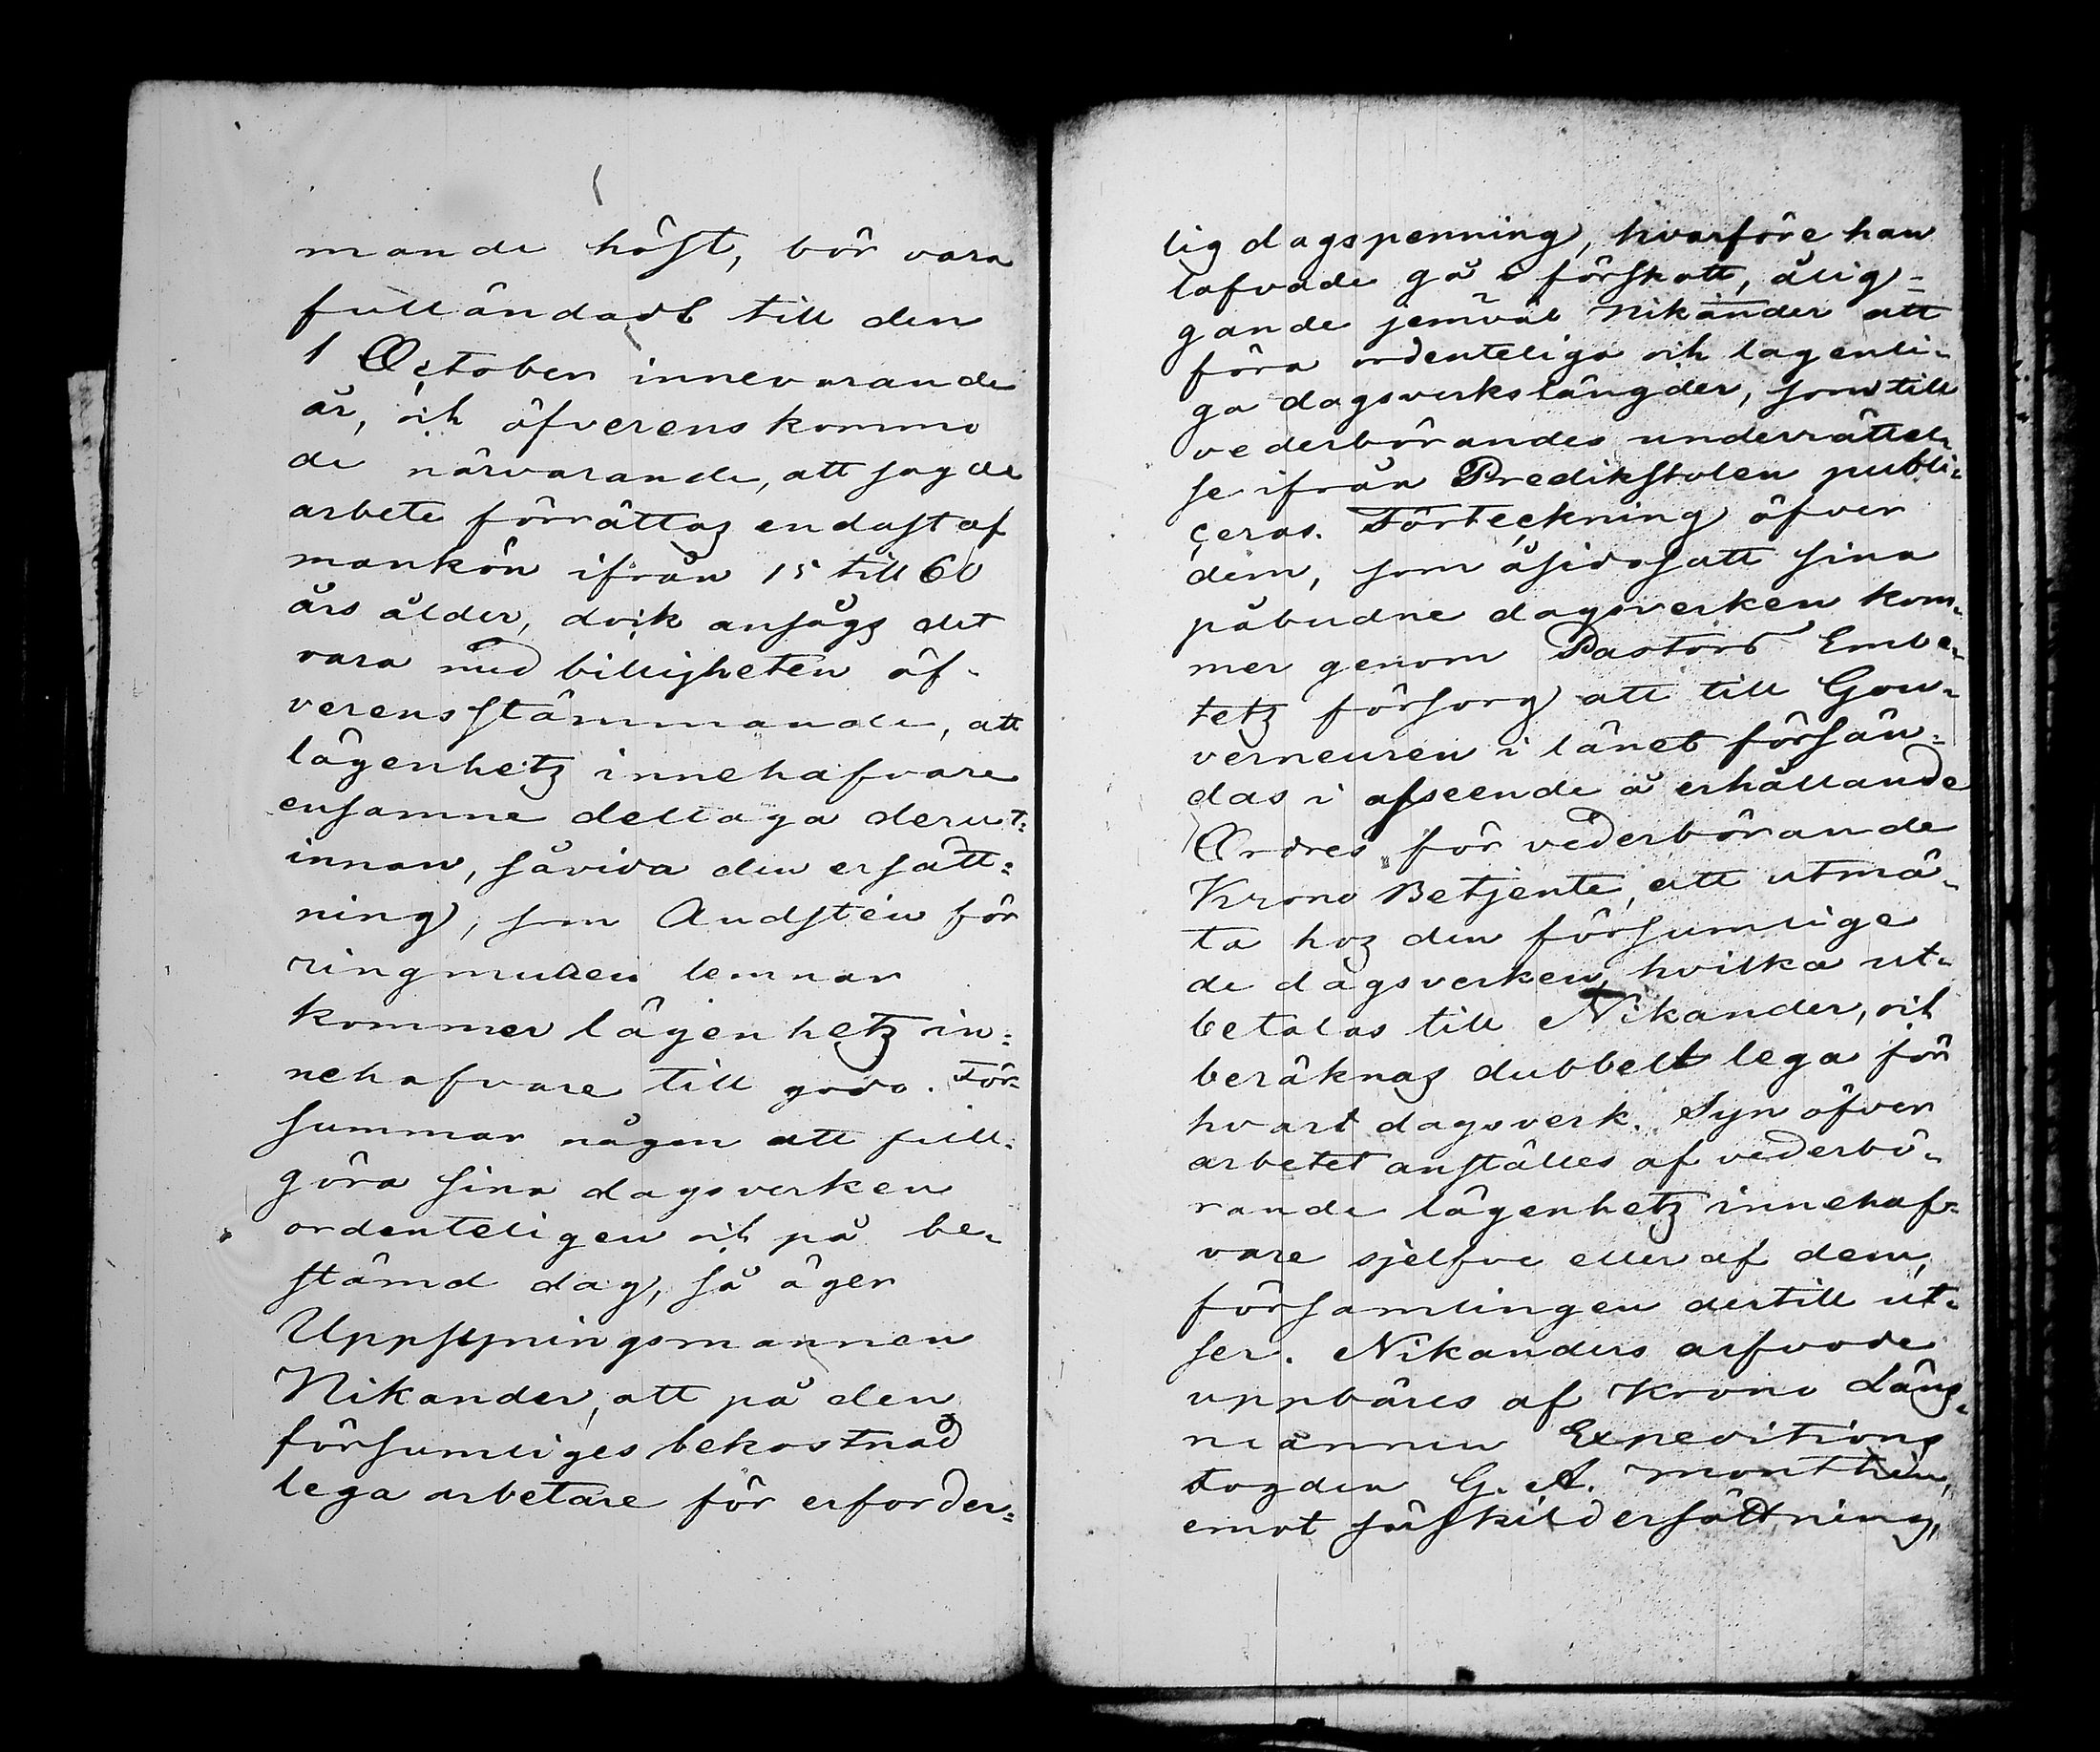 mande höst, bör vara
fulländadt till den
1 October innevarande
år, och öfverenskommo
de närvarande, att sagde
arbete förrättas endast af
mankön ifrån 15 till 60
års ålder, dock ansågs det
vara med billigheten öf-
verensstämmande, att
lägenhetz innehafvare
ensamne deltaga derut-
innan, såvida den ersätt-
ning, som Audsten för
ringmuren lemnar
kommer lägenhetz in-
nehafvare till godo. För-
summar någon att full-
göra sina dagsverken
ordenteligen och på be-
stämd dag, så äger
Uppsyningsmannen
Nikander, att på den
försumliges bekostnad
lega arbetare för erforder-
lig dagspenning, hvarföre han
lofvade gå i förskott, ålig-
gande jemväl Nikander att
föra ordenteliga och lagenli-
ga dagsverkslängder, som till
vederbörandes underrättel-
se ifrån Predikstolen publi-
ceras. Förteckning öfver
dem, som åsidosatt sina
påbudne dagsverken kom-
mer genom Pastors Embe-
tetz försorg att till Gou-
verneuren i länet försän-
das i afseende å erhållande
Ordres för vederbörande
Krono Betjente, att utmä-
ta hoz den försumlige
de dagsverken, hvilka ut-
betalas till Nikander, och
beräknas dubbelt lega för
hvart dagsverk. Syn öfver
arbetet anställes af vederbö-
rande lägenhetz innehaf-
vare sjelfve eller af dem,
församlingen dertill ut-
ser. Nikanders arfvode
uppbäres af Krono Läns-
mannen Expeditions
fogden G. A. Monthén,
emot särskild ersättning,